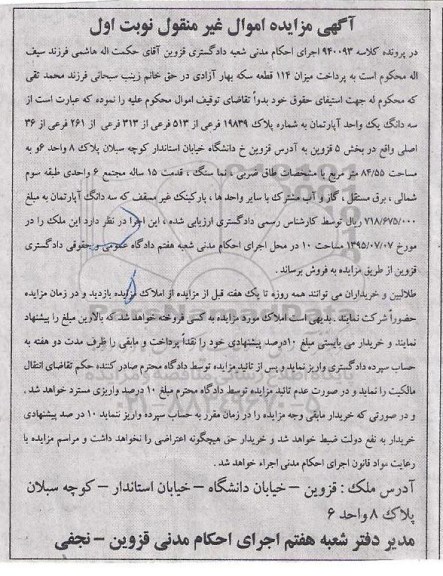 آگهی مزایده اموال غیر منقول نوبت اول
در پرونده کلاسه ۹۴۰۰۹۳ اجرای احکام مدنی شعبه دادگستری قزوین آقای حکمت اله هاشمی فرزند سیف
اله محکوم است به پرداخت میزان ۱۱۴ قطعه سکه بهار آزادی در حق خانم زینب سبحانی فرزند محمد تقی
که محکوم له جهت استیفای حقوق خود بدواً تقاضای توقیف اموال محکوم علیه را نموده که عبارت است از
سه دانگ یک واحد آپارتمان به شماره پلاک ۱۹۸۳۹ فرعی از ۵۱۳ فرعی از ۳۱۳ فرعی از ۲۶۱ فرعی از ۳۶
اصلی واقع در بخش ۵ قزوین به آدرس قزوین خ دانشگاه خیابان استاندار کوچه سبلان پلاک ۸ واحد ۶و به
مساحت ۸۴/۵۵ متر مربع با مشخصات طاق ضربی ، نما سنگ ، قدمت ۱۵ ساله مجتمع ۶ واحدی طبقه سوم
شمالی ، برق مستقل ، گاز و آب مشترک با سایر واحد ها ، پارکینگ غیر مسقف که سه دانگ آپارتمان به مبلغ
۷۱۸/۶۷۵/۰۰۰ ریال توسط کارشناس رسمی دادگستری ارزیابی شده ، این اجرا در نظر دارد این ملک را در
مورخ ۱۳۹۵/۰۷/۰۷ مساحت ۱۰ در محل اجرای احکام مدنی شعبه هفتم دادگاه عمومی و حقوقی دادگستری
قزوین از طریق مزایده به فروش برساند .
طالبین و خریداران می توانند همه روزه تا یک هفته قبل از مزایده از املاک مزایده بازدید و در زمان مزایده
حضوراً شرکت نمایند . بدیهی است املاک مورد مزایده به کسی فروخته خواهد شد که بالاترین مبلغ را پیشنهاد
نمایند و خریدار می بایستی مبلغ ۱۰درصد پیشنهادی خود را نقداً پرداخت و مابقی را ظرف مدت در هفته به
حساب سپرده دادگستری واریز نماید و پس از تائید مزایده توسط دادگاه محترم صادر کننده حکم تقاضای انتقال
مالکیت را نماید و در صورت عدم تائید مزایده توسط دادگاه محترم مبلغ ۱۰ درصد واریزی مسترد خواهد شد .
و در صورتی که خریدار مابقی وجه مزایده را در زمان مقرر به حساب سپرده واریز ننماید ۱۰ در صد پیشنهادی
خریدار به نفع دولت ضبط خواهد شد و خریدار حق هیچگونه اعتراضی را نخواهد داشت و مراسم مزایده با
رعایت مواد قانون اجرای احکام مدنی اجراء خواهد شد .
آدرس ملک : قزوین – خیابان دانشگاه – خیابان استاندار – کوچه سبلان
پلاک ۸ واحد ۶
مدیر دفتر شعبه هفتم اجرای احکام مدنی قزوین – نجفی